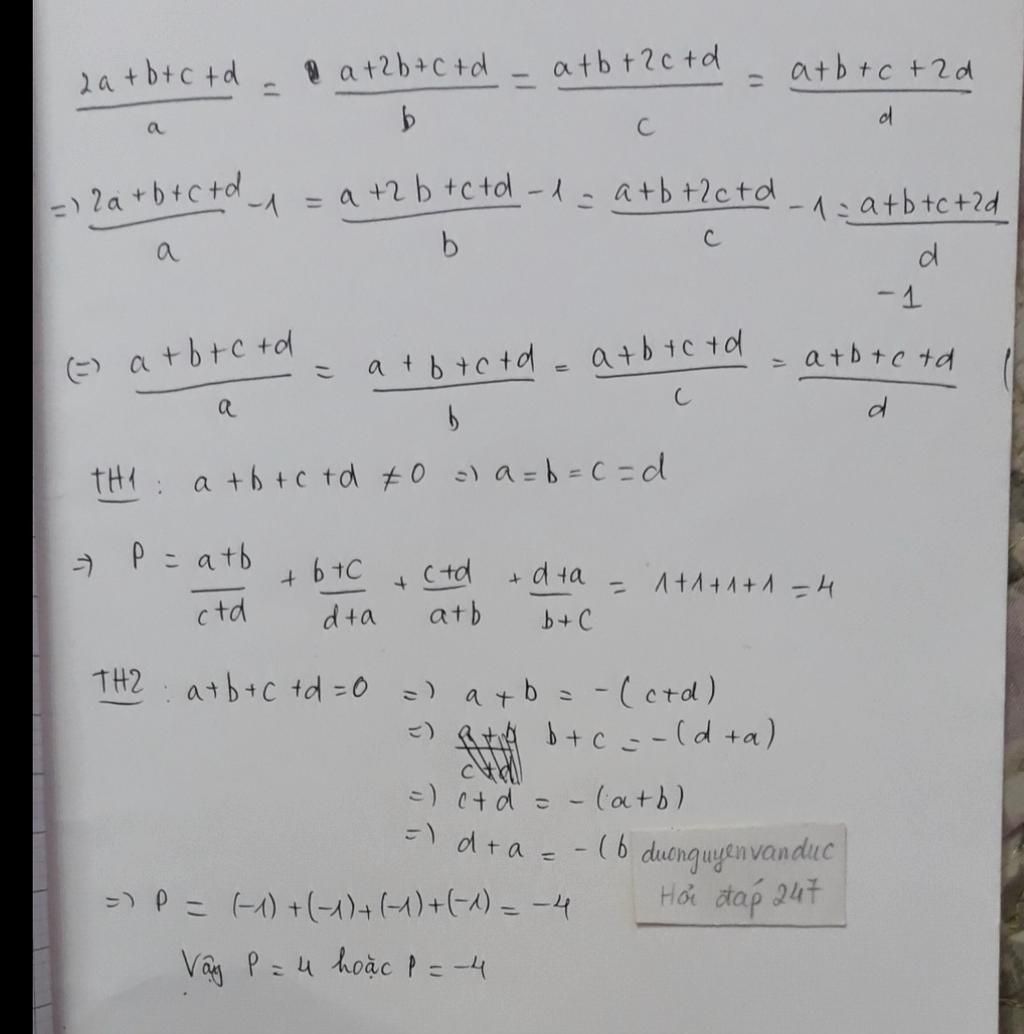 (2a+b+c+d)/a = (a+2b+c+d)/b = (a+b+2c+d)/c = (a+b+c+2d)/d
=> (2a+b+c+d)/a -1 = (a+2b+c+d)/b -1 = (a+b+2c+d)/c -1 = (a+b+c+2d)/d
-1
(=) (a+b+c+d)/a = (a+b+c+d)/b = (a+b+c+d)/c = (a+b+c+d)/d (
TH1: a+b+c+d ≠ 0 => a=b=c=d
=> P = (a+b)/(c+d) + (b+c)/(d+a) + (c+d)/(a+b) + (d+a)/(b+c) = 1+1+1+1 = 4
TH2: a+b+c+d=0 => a+b = -(c+d)
=> b+c = -(d+a)
=> c+d = -(a+b)
=> d+a = -(b
duonguyenvanduc
Hỏi đáp 247
=> P = (-1)+(-1)+(-1)+(-1) = -4
Vậy P = 4 hoặc P = -4